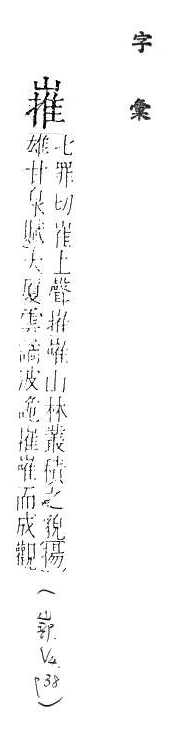 字彙
嶊
七罪切崔上聲摧嶉山林叢積之貌楊
雄甘泉賦大廈雲譎波詭摧嶉而成觀
(山部 V4. p38)